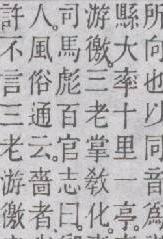 所向也以同音爲
縣大率十里一亭。亭
游徼三老掌敎化。
司馬彪百官志曰。
人。風俗通云。嗇者
許不言三老游徼